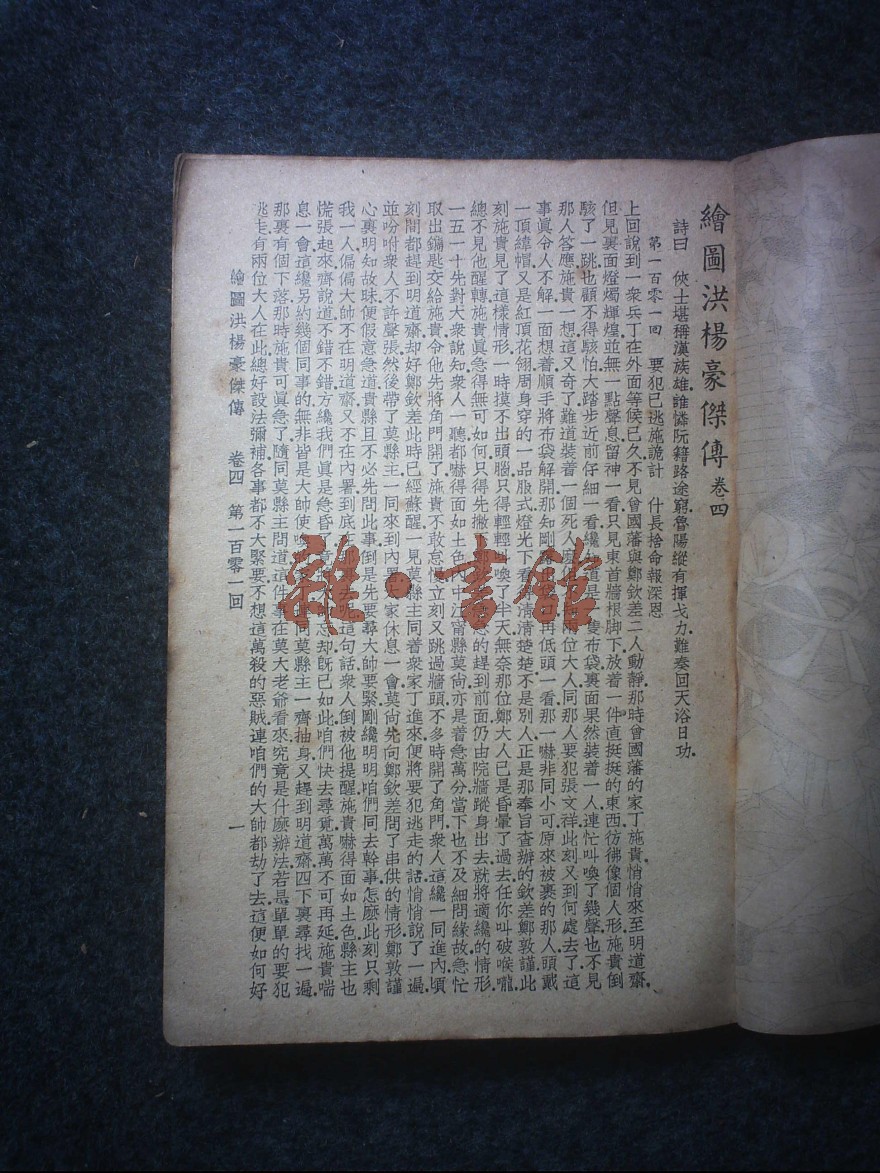 繪圖洪楊豪傑傳 卷四
詩曰 俠士堪稱漢族雄.誰憐阮籍路途窮.魯陽縱有揮戈力.難奏回天浴日功.
第一百零一回 要犯已逃施詭計 什長捨命報深恩
上回說到一衆兵丁在外面等候已久不見曾國藩與鄭欽差二人動靜.那時曾國藩的家丁施貴悄悄來至明道齋.
但見裏面燈燭輝煌.並無一點聲息.留神一看.只見東首牆根脚下.放着一件直挺挺的東西.彷彿像個人形.施貴倒
駭了一跳.也顧不得駭怕.大踏步近前仔細一看.纔知道是一隻布袋.裏面果然裝着一人.連忙叫喚了幾聲.也不見
那人答應.施貴一想.這又奇了.難道裝着一個死人麽 兩位大人同那人要犯張文祥.此刻又到何處去了.這
事眞令人不解.一面想着.順手將布袋解開.那知剛 再低頭一看.那一嚇非同小可.原來被裹的那人.頭戴
一頂緯帽.又是紅頂花翎.周身穿的一品服式.燈光下看 清清楚楚.不是別人.正是那奉旨查辦的欽差鄭敦謹.此
刻施貴見了這樣情形.一時摸不出頭腦.只得輕輕叫喚了半天.無奈那位鄭大人已是昏暈了過去.任你叫破喉嚨.
總不見他醒轉.施貴眞急得無可如何.只得先撇 的趕到前面.仍由院牆蹤身出去.就將適纔的情形.
一五一十先對大衆說知.衆人一聽.都嚇得面如土色.內中江甯縣莫尙.亦是着急萬分.當下也不及細問緣故.急忙
取出鑰匙.交給施貴.令他先將角門開了.施貴不敢怠慢.立刻又跳過牆頭.不多時開了角門.衆人這纔一同進內.頃
刻間都趕到明道齋.却好鄭欽差此時已經蘇醒.一見莫縣主同着衆家丁進來.便將要犯逃走的話.悄悄說了一遍.
並吩咐衆人不許聲張.然後帶了莫縣主.一同來到內署.大家休息一會.莫尙先向鄭欽差問了串供的情形.鄭敦謹
心裏明知故昧.便假意急道.貴縣且不必先問此事.倒是先要尋大帥要緊.剛纔明明咱們同去幹事.怎麽此刻只剩
我一人.偏偏大帥不在明道齋.又不在內署.到底 去呢.這句話衆人倒被他提醒.施貴嚇得面如土色.縣主也
慌張起來.齊說道.不錯不錯.方纔我們眞是急昏了 忘却.旣已如此.咱們快去尋覓.萬萬不可再延.施貴喘
息一會.這纔另約幾個同事的.無非皆是大帥使喚 同莫縣主一齊抽身.又趕到明道齋.四下裏尋找一遍.
那裏有個下落.那時施貴可眞急了.隨同莫縣主問道.這件事在莫大老爺看來.究竟是什麽辦法.若是單單的要犯
逃走.有兩位大人在此.總好設法彌補.各事都不大緊要.不想這萬殺的惡賊.連咱們的大帥都劫了去.這便如何好
繪圖洪楊豪傑傳 卷四 第一百零一回 一
雜·書館